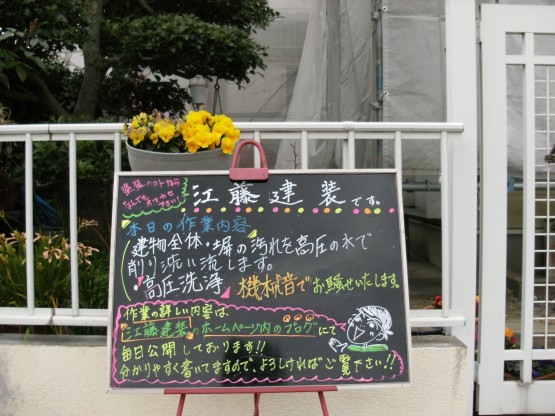 塗装のコトなら
なんでも
おまかせ
下さい!
江藤建装です。
本日の作業内容
建物全体・塀の汚れを高圧の水で
削り洗い流します。
・高圧洗浄
機械音でお騒せいたします。
作業の詳しい内容は
江藤建装のホームページ内のブログにて
毎日公開しております!!
分かりやすく書いてますので、よろしければご覧下さい!!